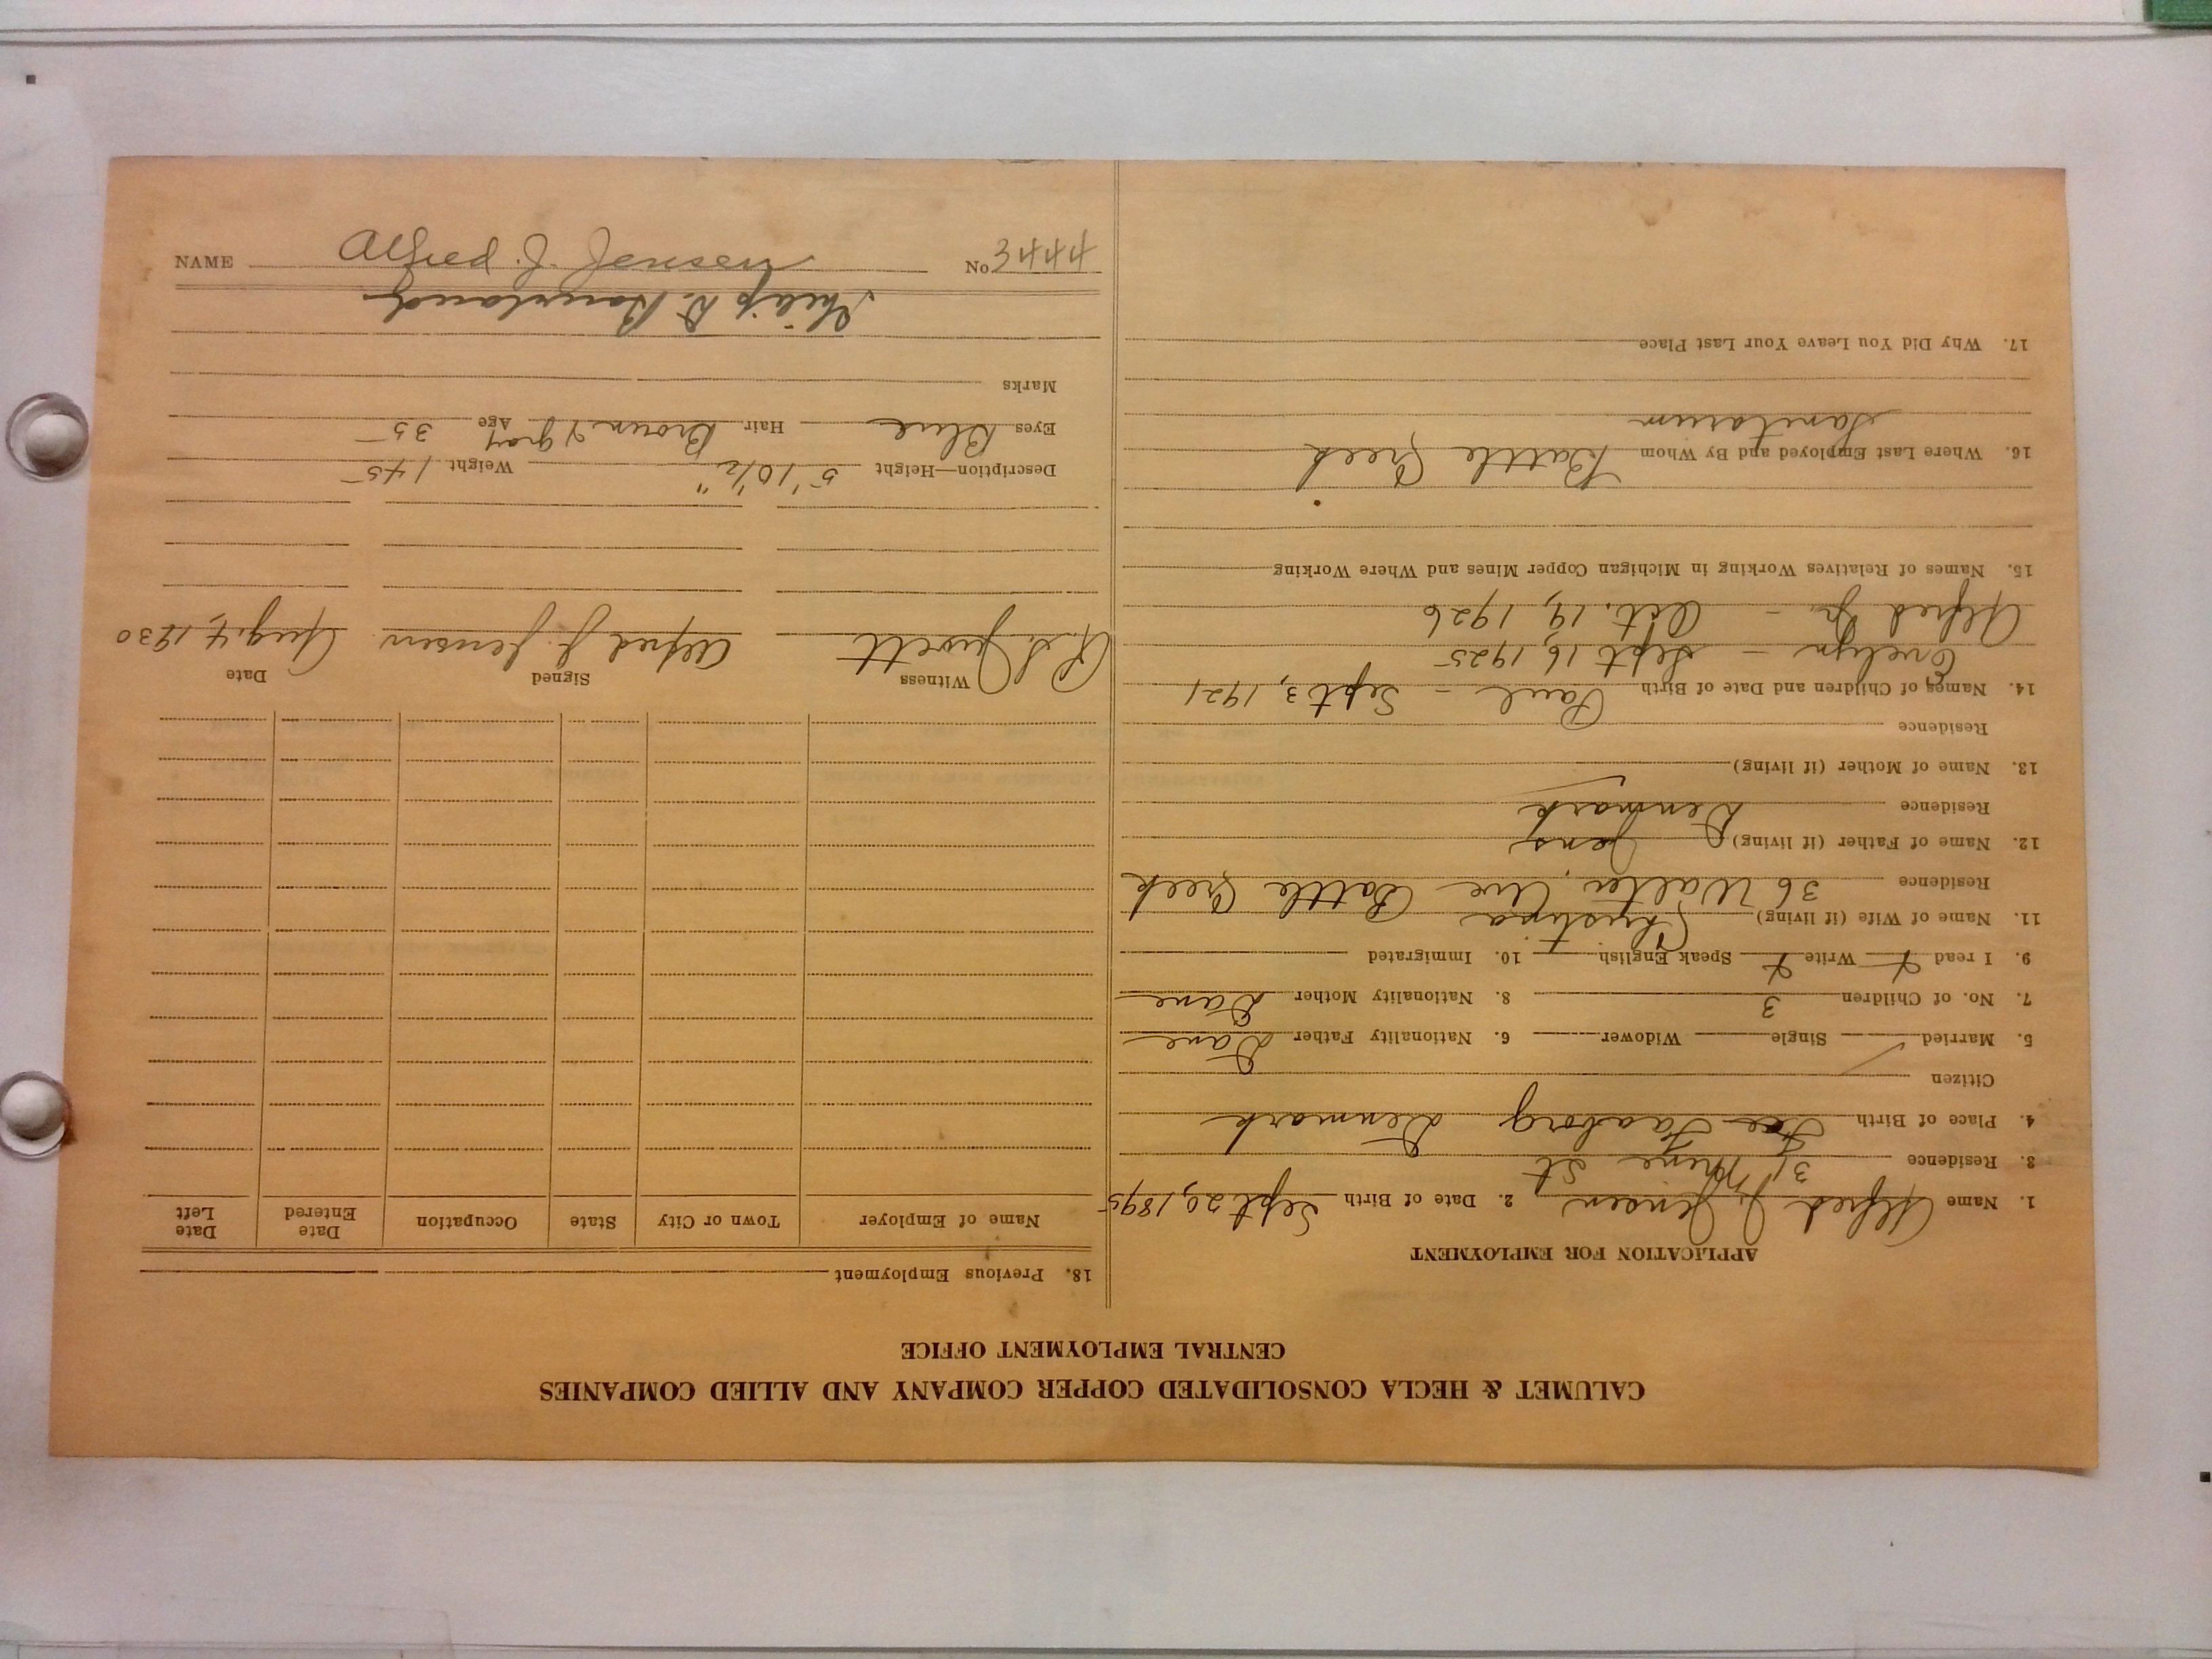 CALUMET & HECLA CONSOLIDATED COPPER COMPANY AND ALLIED COMPANIES
CENTRAL EMPLOYMENT OFFICE
APPLICATION FOR EMPLOYMENT
1. Name Alfred J. Jensen 2. Date of Birth Sept. 20, 1895
3. Residence 31 Mine St
4. Place of Birth Faaborg Denmark
Citizen
5. Married Single Widower 6. Nationality Father Dane
7. No. of Children 3 8. Nationality Mother Dane
9. I read Write Speak English 10. Immigrated
11. Name of Wife (if living) Christina
Residence 36 Walter Ave Battle Creek
12. Name of Father (if living) Jens
Residence Denmark
13. Name of Mother (if living)
Residence
14. Names of Children and Date of Birth Paul - Sept 3, 1921
Evelyn - Sept 16, 1925
Alfred Jr. - Oct. 19, 1926
15. Names of Relatives Working in Michigan Copper Mines and Where Working
16. Where Last Employed and By Whom Battle Creek
Sanitarium
17. Why Did You Leave Your Last Place
18. Previous Employment
Name of Employer Town or City State Occupation Date Entered Date Left
Witness Signed Date
Alfred J. Jensen Aug. 4, 1930
Description—Height 5' 10 1/2" Weight 145
Eyes Blue Hair Brown & gray Age 35
Marks
Philip D.
NAME Alfred J. Jensen No 3444